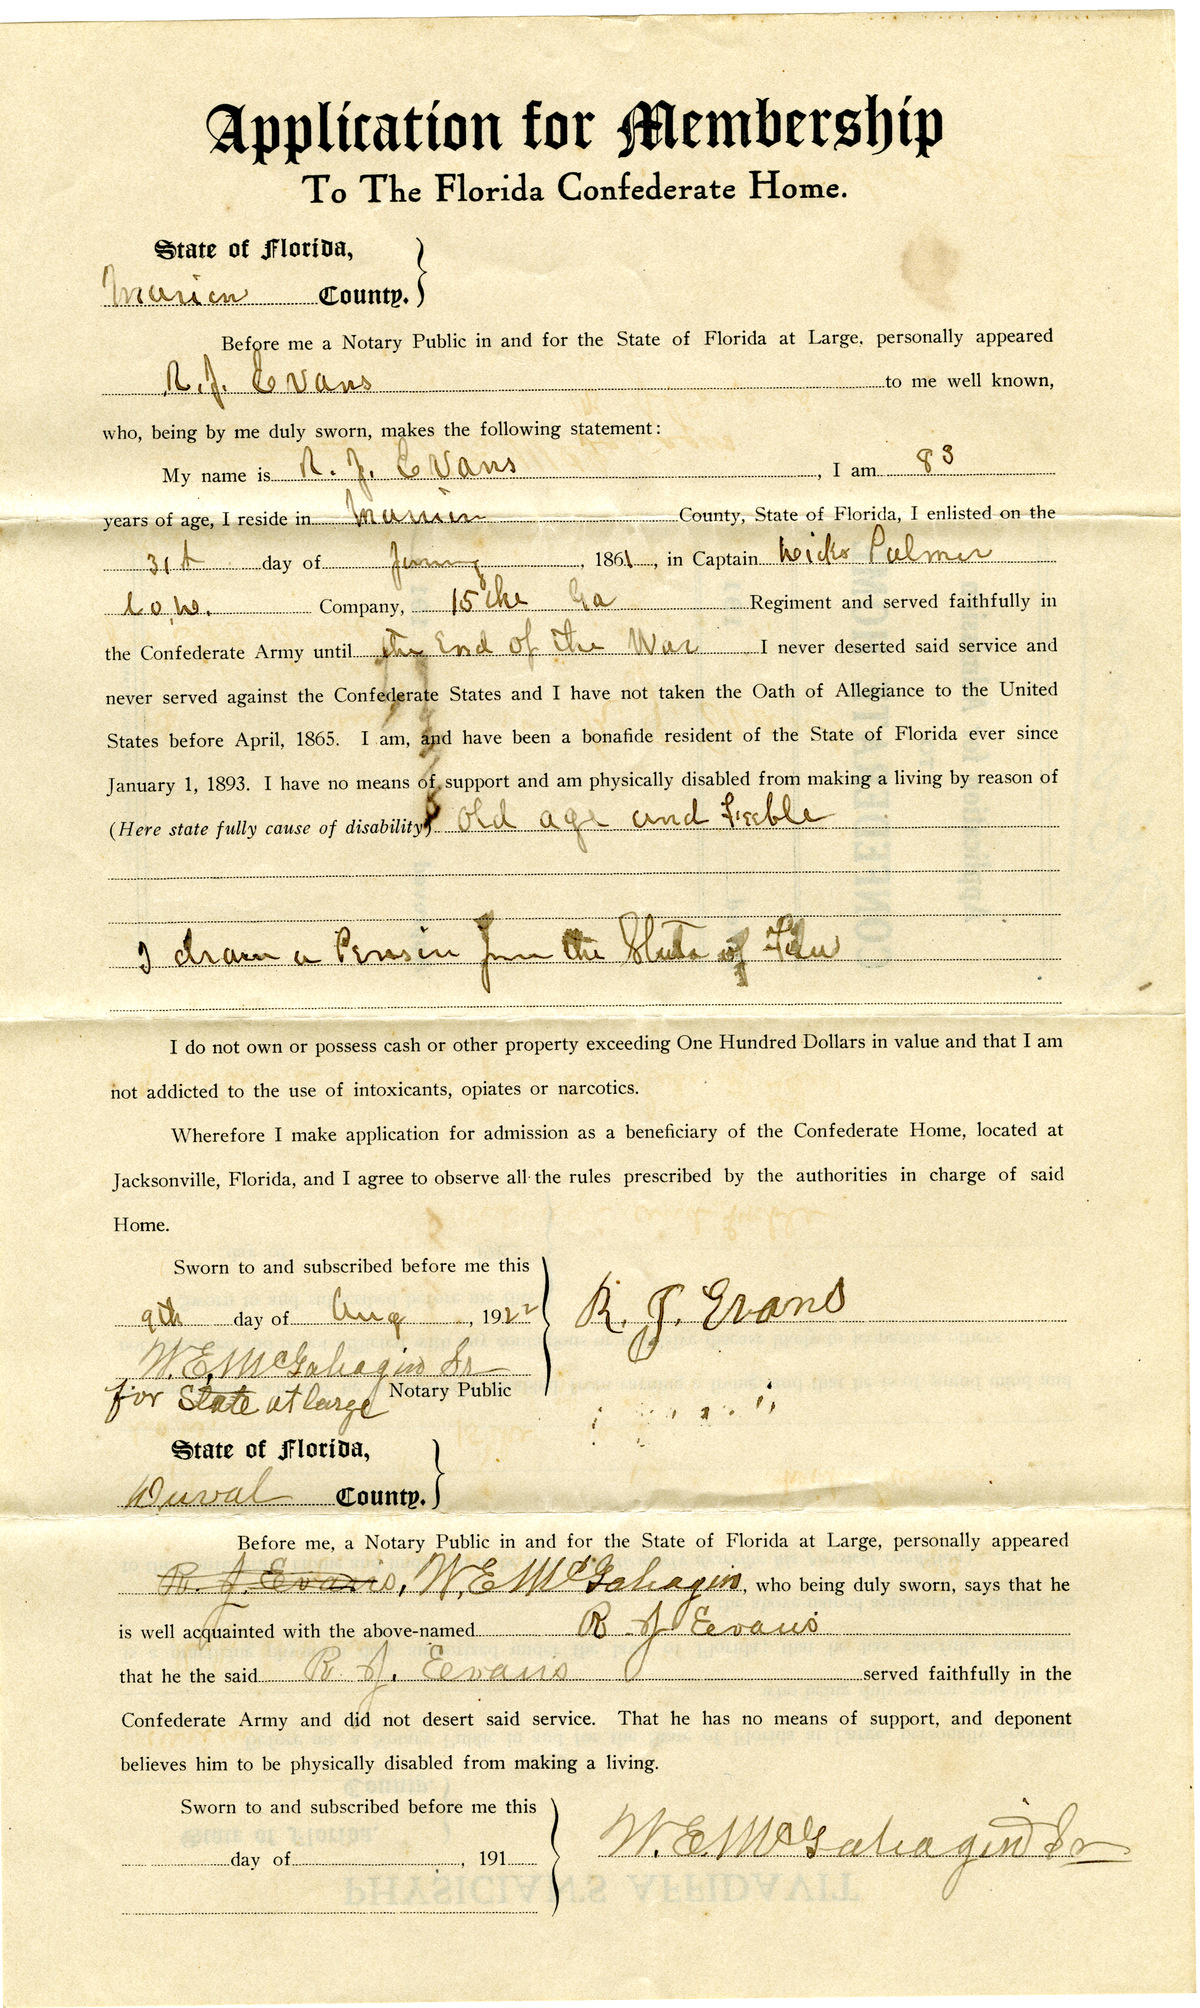 Application for Membership
To The Florida Confederate Home.
State of Florida,
Marion County.
Before me a Notary Public in and for the State of Florida at Large, personally appeared
R. J. Evans to me well known,
who, being by me duly sworn, makes the following statement:
My name is R. J. Evans, I am 83
years of age, I reside in Marion County, State of Florida, I enlisted on the
31st day of 1861, in Captain Palmer
Co. Company, 15the Ga Regiment and served faithfully in
the Confederate Army until the End of the War I never deserted said service and
never served against the Confederate States and I have not taken the Oath of Allegiance to the United
States before April, 1865. I am, and have been a bonafide resident of the State of Florida ever since
January 1, 1893. I have no means of support and am physically disabled from making a living by reason of
(Here state fully cause of disability) Old age and Feeble
I draw a Pension from the State of Fla
I do not own or possess cash or other property exceeding One Hundred Dollars in value and that I am
not addicted to the use of intoxicants, opiates or narcotics.
Wherefore I make application for admission as a beneficiary of the Confederate Home, located at
Jacksonville, Florida, and I agree to observe all the rules prescribed by the authorities in charge of said
Home.
Sworn to and subscribed before me this
9th day of Aug, 1922
R. J. Evans
W. E. McGahagin Sr
for State at large Notary Public
State of Florida,
Duval County.
Before me, a Notary Public in and for the State of Florida at Large, personally appeared
R. J. Evans, W. E. McGahagin, who being duly sworn, says that he
is well acquainted with the above-named R J Evans
that he the said R. J. Evans served faithfully in the
Confederate Army and did not desert said service. That he has no means of support, and deponent
believes him to be physically disabled from making a living.
Sworn to and subscribed before me this
day of , 191
W. E. McGahagin Sr